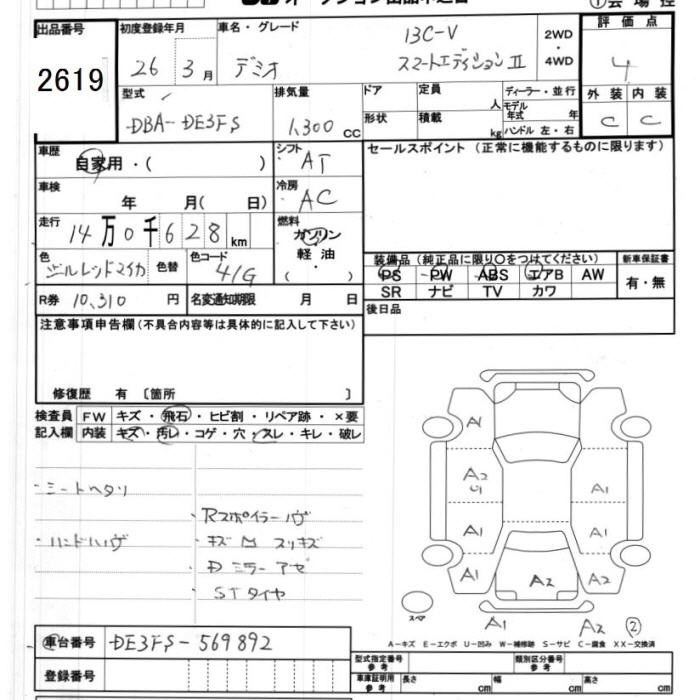 出品番号
2619
初度登録年月
26 3月
車名・グレード
デミオ
13C-V
スマートエディションⅡ
2WD
・
4WD
①会場控
評価点
4
外装 内装
C C
型式
DBA-DE3FS
排気量
1,300cc
ドア
定員
人
形状
積載
kg
ディーラー・並行
モデル年式 年
ハンドル 左・右
車歴
自家用・( )
シフト
AT
セールスポイント (正常に機能するものに限ります)
車検
年 月( 日)
冷房
AC
走行
14万0千628km
燃料
ガソリン
軽油
( ・ )
色
ジールレッドマイカ
色替
色コード
41G
装備品 (純正品に限り○をつけてください)
新車保証書
PS PW ABS エアB AW
有・無
SR ナビ TV カワ
R券 10,310円
名変通知期限 月 日
後日品
注意事項申告欄(不具合内容等は具体的に記入して下さい)
修復歴 有 〔箇所 〕
検査員
記入欄
FW キズ・飛石・ヒビ割・リペア跡・×要
内装 キズ・汚レ・コゲ・穴・スレ・キレ・破レ
・シートヘタリ
・Rスポイラーハゲ
・ハンドハゲ
・ドミラーアセ
・STタイヤ
A1
A2
U1
A1
A1
A1
A1
A2
A2
スペア
A1
A2 ②
A-キズ E-エクボ U-凹み W-補修跡 S-サビ C-腐食 XX-交換済
車台番号 DE3FS-569892
登録番号
型式指定番号
参考
類別区分番号
参考
車庫証明用
参考
長さ cm
幅 cm
高さ cm